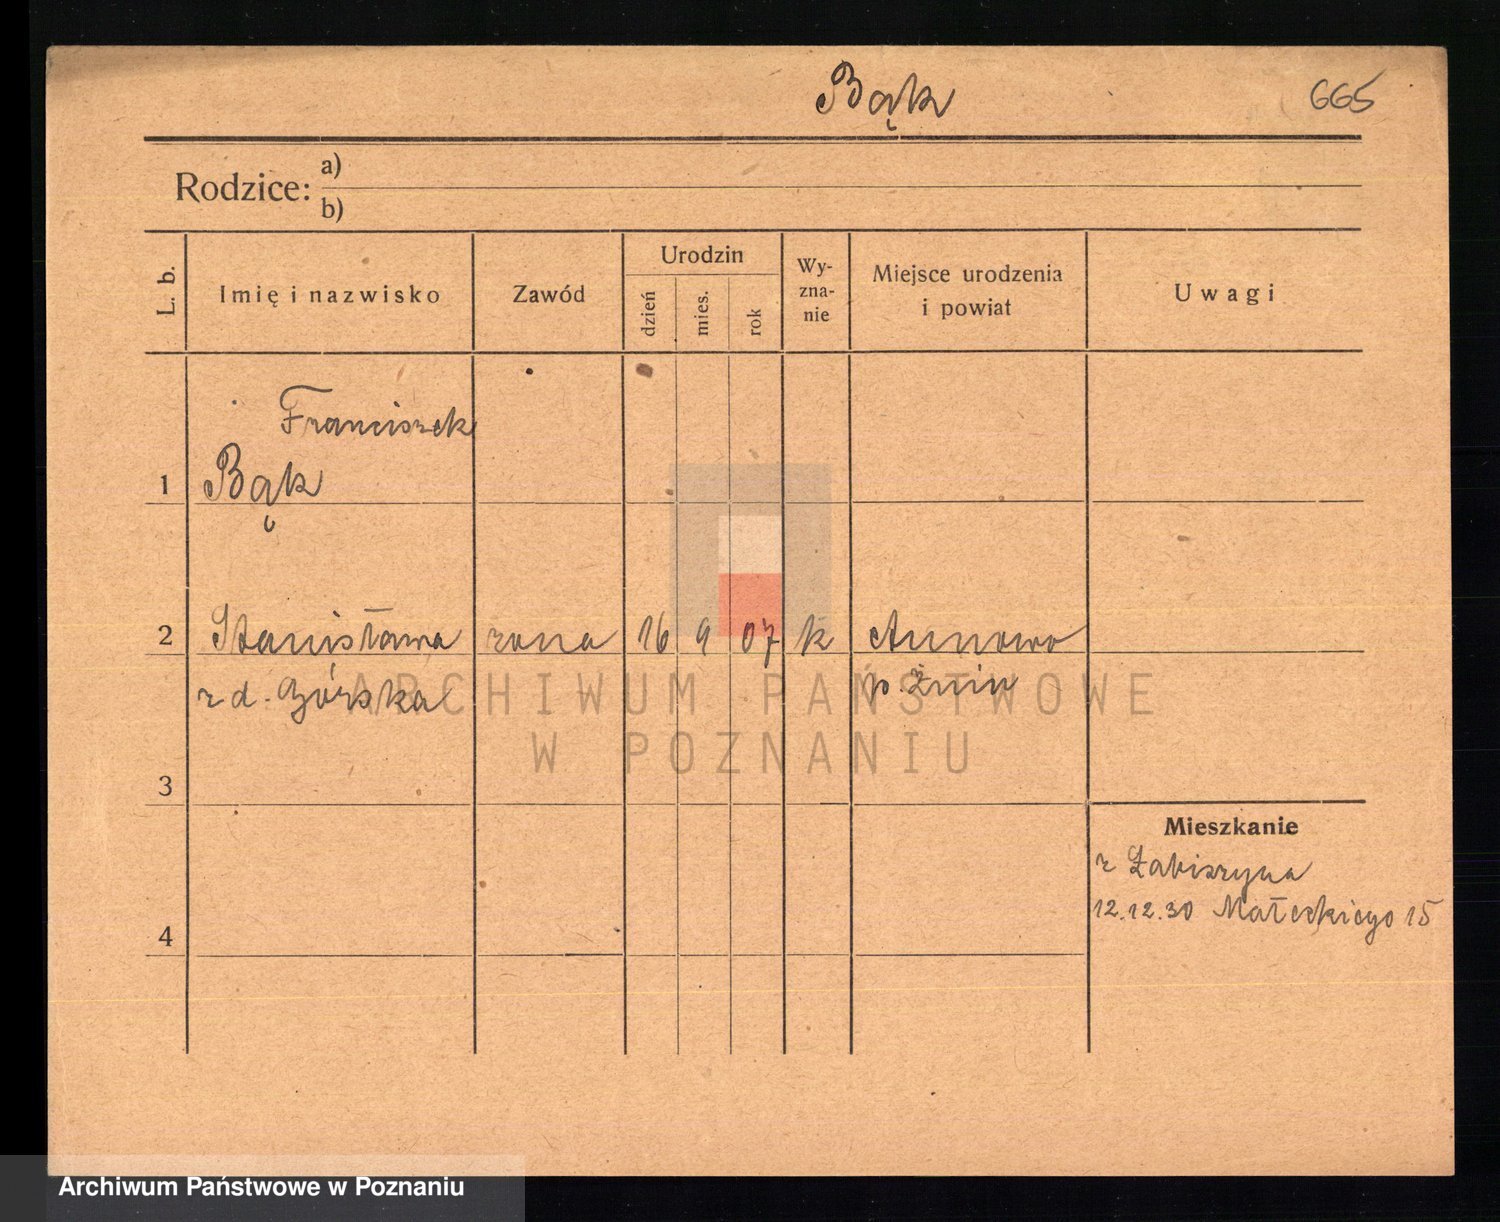 Bąk
665
Rodzice:
a)
b)
L. b.
Imię i nazwisko
Zawód
Urodzin
dzień
mies.
rok
Wy-
zna-
nie
Miejsce urodzenia
i powiat
Uwagi
Franciszek
1 Bąk
2 Stanisława zona 16 9 07 k Annowo
z d. Górska p. Żnin
ARCHIWUM PAŃSTWOWE
W POZNANIU
3
Mieszkanie
z Łabiszyna
12.12.30 Małeckiego 15
4
Archiwum Państwowe w Poznaniu